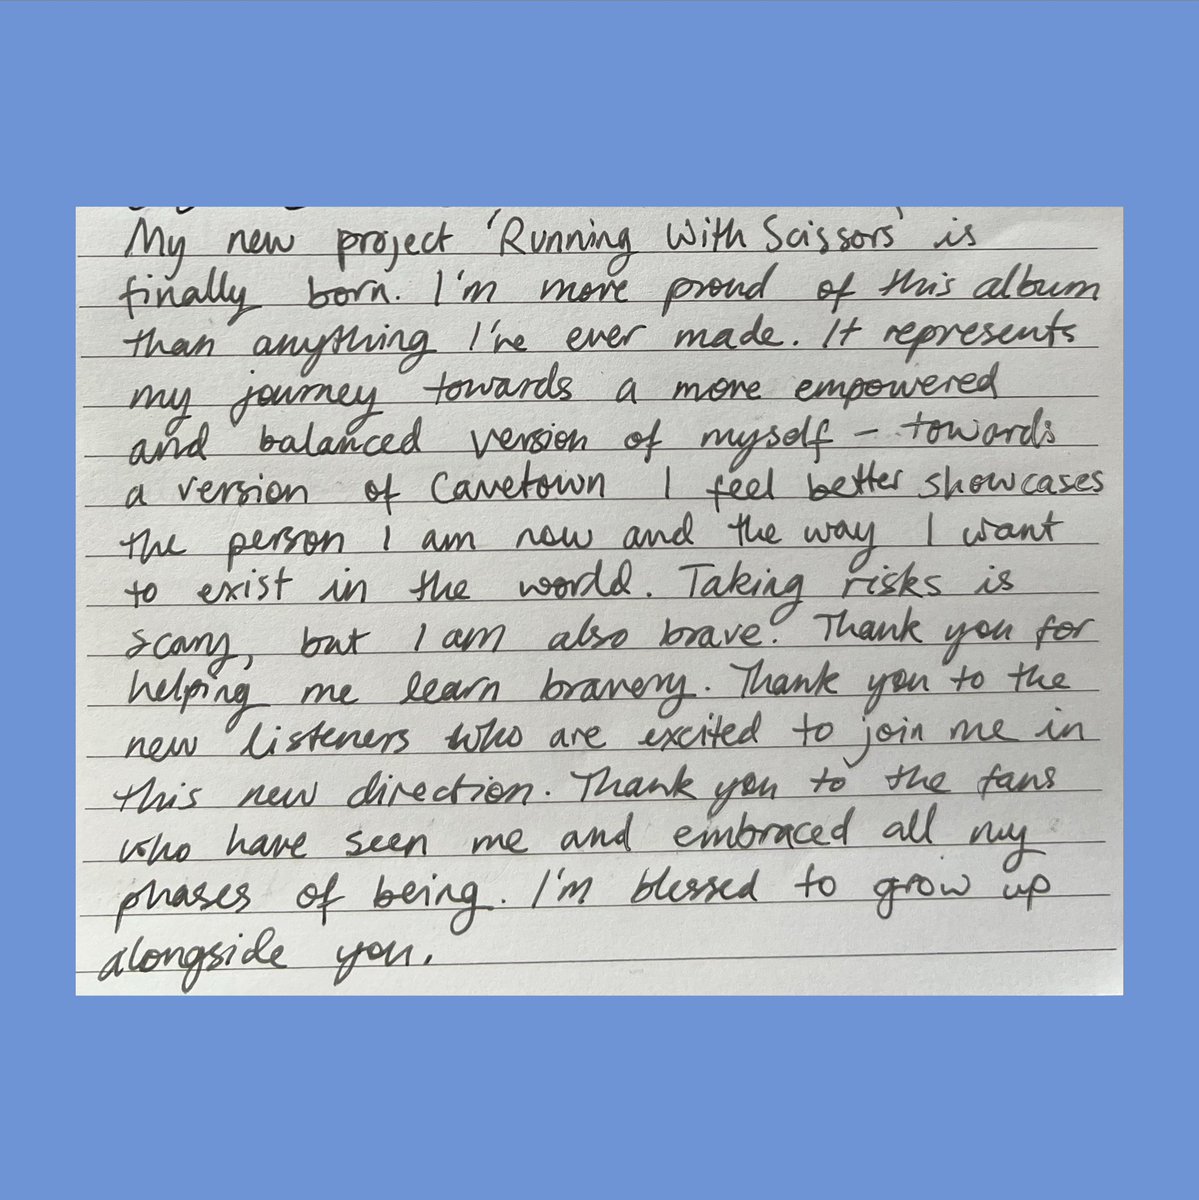 My new project 'Running With Scissors' is
finally born. I'm more proud of this album
than anything I've ever made. It represents
my journey towards a more empowered
and balanced version of myself – towards
a version of Cavetown I feel better showcases
the person I am now and the way I want
to exist in the world. Taking risks is
scary, but I am also brave. Thank you for
helping me learn bravery. Thank you to the
new listeners who are excited to join me in
this new direction. Thank you to the fans
who have seen me and embraced all my
phases of being. I'm blessed to grow up
alongside you.